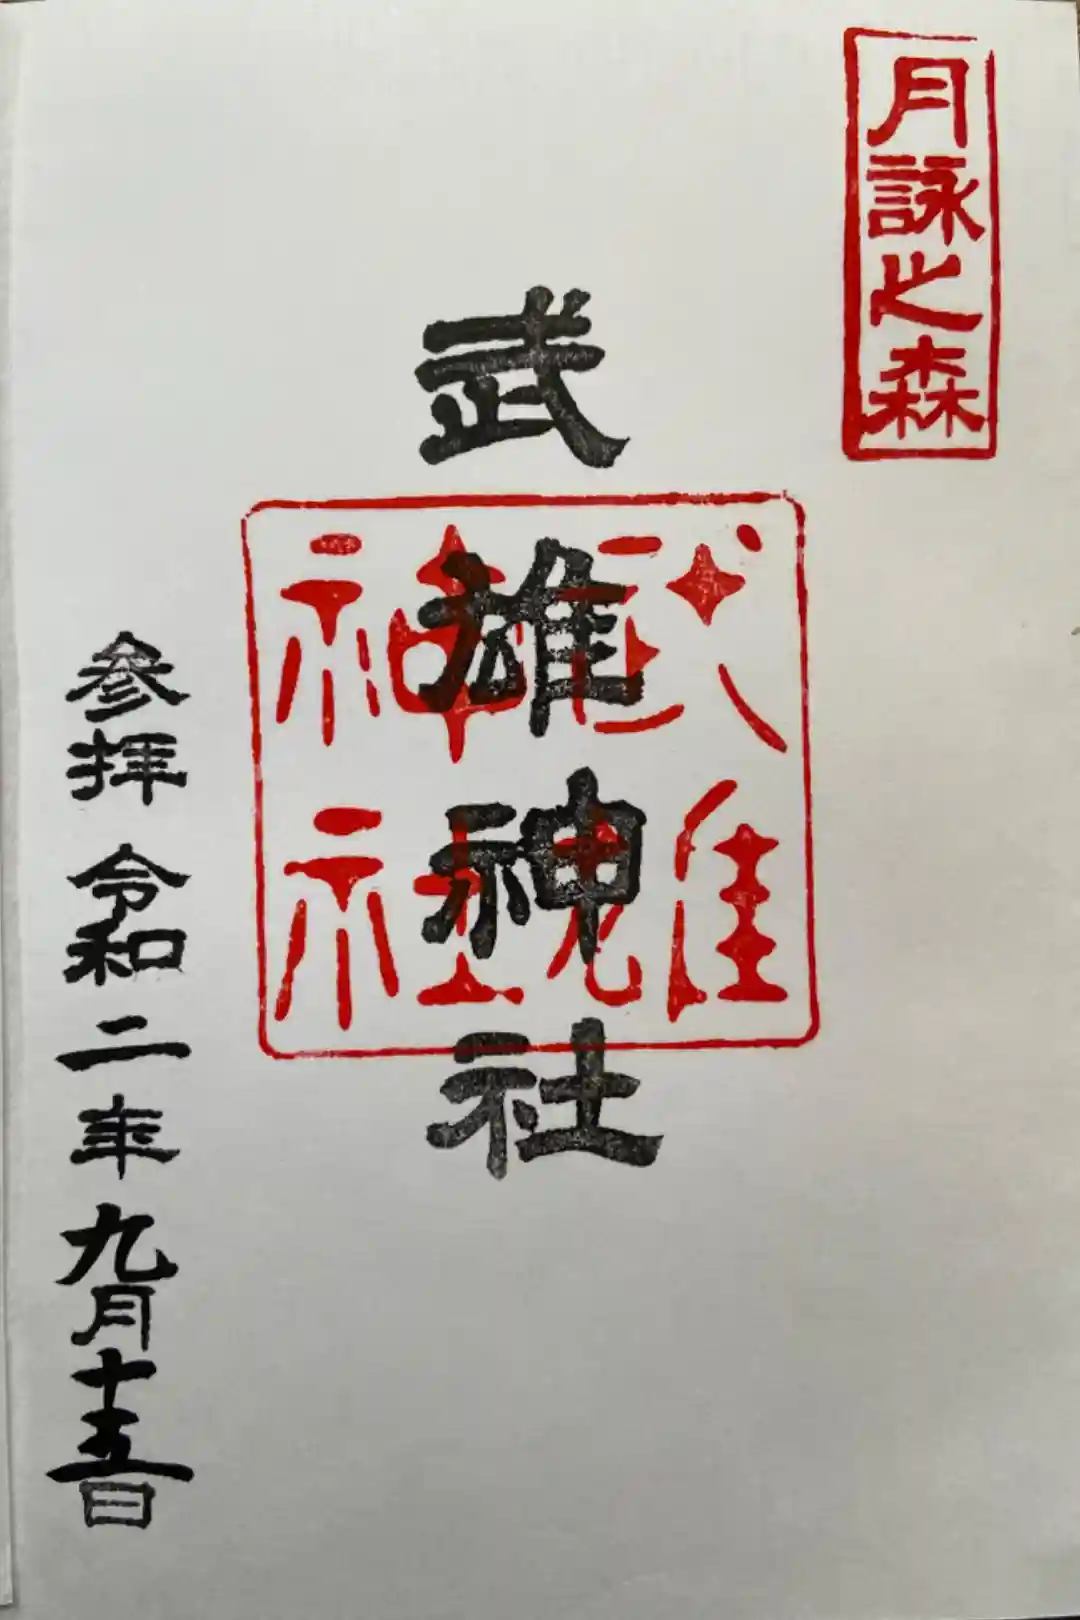 月詠之森
武雄神社
武雄
神社
参拝 令和二年九月十五日